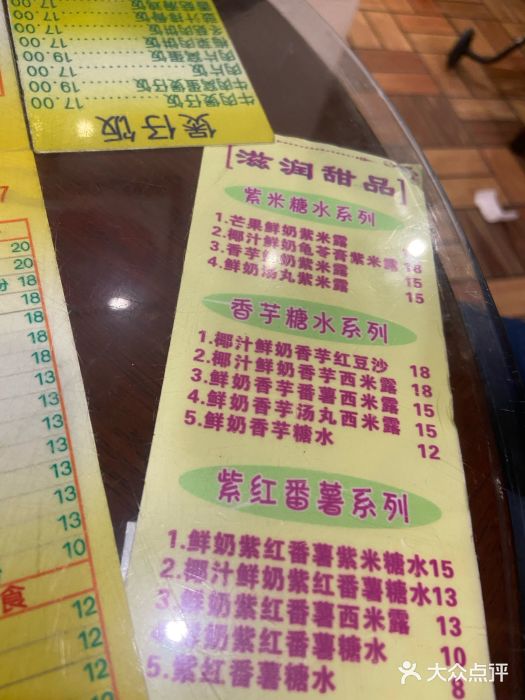 煲仔饭
牛肉煲仔饭 17.00
牛肉窝蛋饭 18.00
肉片饭 17.00
肉片窝蛋饭 19.00
梅菜肉饼饭 17.00
冬菇肉饼饭 17.00
豉汁排骨饭 17.00
7
20
20
18
18
18
13
13
13
13
13
13
10
食
12
12
12
12
[滋润甜品]
紫米糖水系列
1.芒果鲜奶紫米露
2.椰汁鲜奶龟苓膏紫米露 18
3.香芋鲜奶紫米露 15
4.鲜奶汤丸紫米露 15
香芋糖水系列
1.椰汁鲜奶香芋红豆沙 18
2.椰汁鲜奶香芋西米露 18
3.鲜奶香芋番薯西米露 15
4.鲜奶香芋汤丸西米露 15
5.鲜奶香芋糖水 12
紫红番薯系列
1.鲜奶紫红番薯紫米糖水15
2.椰汁鲜奶紫红番薯糖水13
3.鲜奶紫红番薯西米露 13
4.鲜奶紫红番薯糖水 10
5.紫红番薯糖水
大众点评